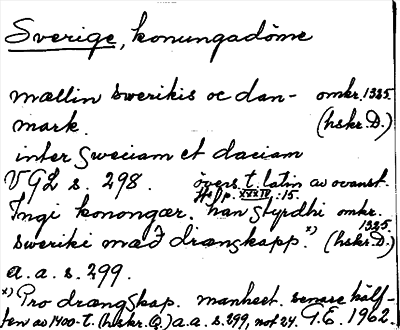 Sverige, konungadöme
mællin swerikis oc dan- omkr. 1325.
mark. (hskr. D.)
inter sweciam et daciam
VGL s. 298. övers. t. latin av ovanst.
Hs. p. XXXIV:15.
Ingi konongær. han styrdhi omkr.
sweriki mæð drængskapp.ˣ⁾ 1325.
(hskr. D.)
a.a.s. 299.
ˣ⁾ Pro drængskap. manhect. senare hälf-
ten av 1400-t. (hskr. G.) a.a.s. 299, not 24. G.E. 1962.